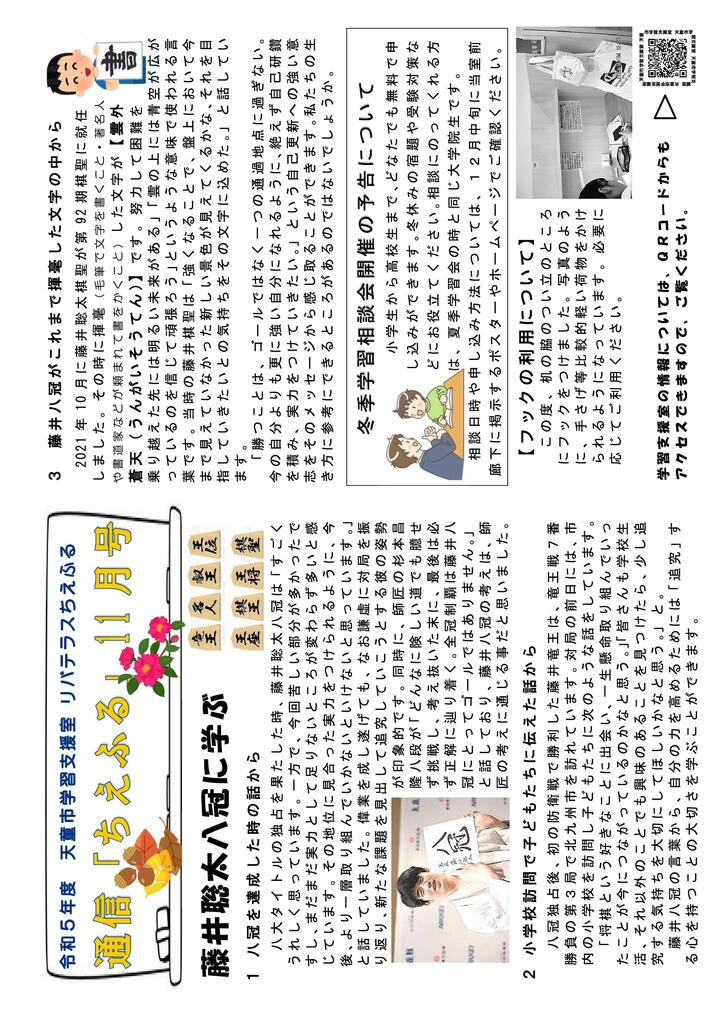 令和５年度　天童市学習支援室　リバテラスちえふる
通信「ちえふる」11月号
藤井聡太八冠に学ぶ
竜王 名人 叡王 王位
王座 棋王 王将 棋聖
１ 八冠を達成した時の話から
八大タイトルの独占を果たした時、藤井聡太八冠は「すごく
うれしく思っています。一方で、今回苦しい部分が多かったで
すし、まだまだ実力として足りないところが変わらず多いと感
じています。その地位に見合った実力をつけられるように、今
後、より一層取り組んでいかないといけないと思っています。」
と話していました。偉業を成し遂げても、なお謙虚に対局を振
り返り、新たな課題を見出して追究していこうとする彼の姿勢
が印象的です。同時に、師匠の杉本昌
隆八段が「どんなに険しい道でも臆せ
ず挑戦し、考え抜いた末に、最後は必
ず正解に辿り着く。全冠制覇は藤井八
冠にとってゴールではありません。」
と話しており、藤井八冠の考えは、師
匠の考えに通じる事だと思いました。
八冠
２ 小学校訪問で子どもたちに伝えた話から
八冠独占後、初の防衛戦で勝利した藤井竜王は、竜王戦７番
勝負の第３局で北九州市を訪れています。対局の前日には、市
内の小学校を訪問し子どもたちに次のような話をしています。
「将棋という好きなことに出会い、一生懸命取り組んでいっ
たことが今につながっているのかなと思う。」「皆さんも学校生
活、それ以外のことでも興味のあることを見つけたら、少し追
究する気持ちを大切にしてほしいかなと思う。」と。
藤井八冠の言葉から、自分の力を高めるためには「追究」す
る心を持つことの大切さを学ぶことができます。
３ 藤井八冠がこれまで揮毫した文字の中から
書
2021年10月に藤井聡太棋聖が第92期棋聖に就任
しました。その時に揮毫（毛筆で文字を書くこと・著名人
や書道家などが頼まれて書をかくこと）した文字が【雲外
蒼天（うんがいそうてん）】です。努力して困難を
乗り越えた先には明るい未来がある」「雲の上には青空が広が
っているのを信じて頑張ろう」というような意味で使われる言
葉です。当時の藤井棋聖は「強くなることで、盤上において今
まで見えていなかった新しい景色が見えてくるかな、それを目
指していきたいとの気持ちをその文字に込めた。」と話してい
ます。
「勝つことは、ゴールではなく一つの通過地点に過ぎない。
今の自分よりも更に強い自分になれるように、絶えず自己研鑽
を積み、実力をつけていきたい。」という自己更新への強い意
志をそのメッセージから感じ取ることができます。私たちの生
き方に参考にできるところがあるのではないでしょうか。
冬季学習相談会開催の予告について
小学生から高校生まで、どなたでも無料で申
し込みができます。冬休みの宿題や受験対策な
どにお役立てください。相談にのってくれる方
は、夏季学習会の時と同じ大学院生です。
相談日時や申し込み方法については、１２月中旬に当室前
廊下に掲示するポスターやホームページでご確認ください。
【フックの利用について】
この度、机の脇のつい立のところ
にフックをつけました。写真のよう
に、手さげ等比較的軽い荷物をかけ
られるようになっています。必要に
応じてご利用ください。
学習支援室の情報については、ＱＲコードからも
アクセスできますので、ご覧ください。